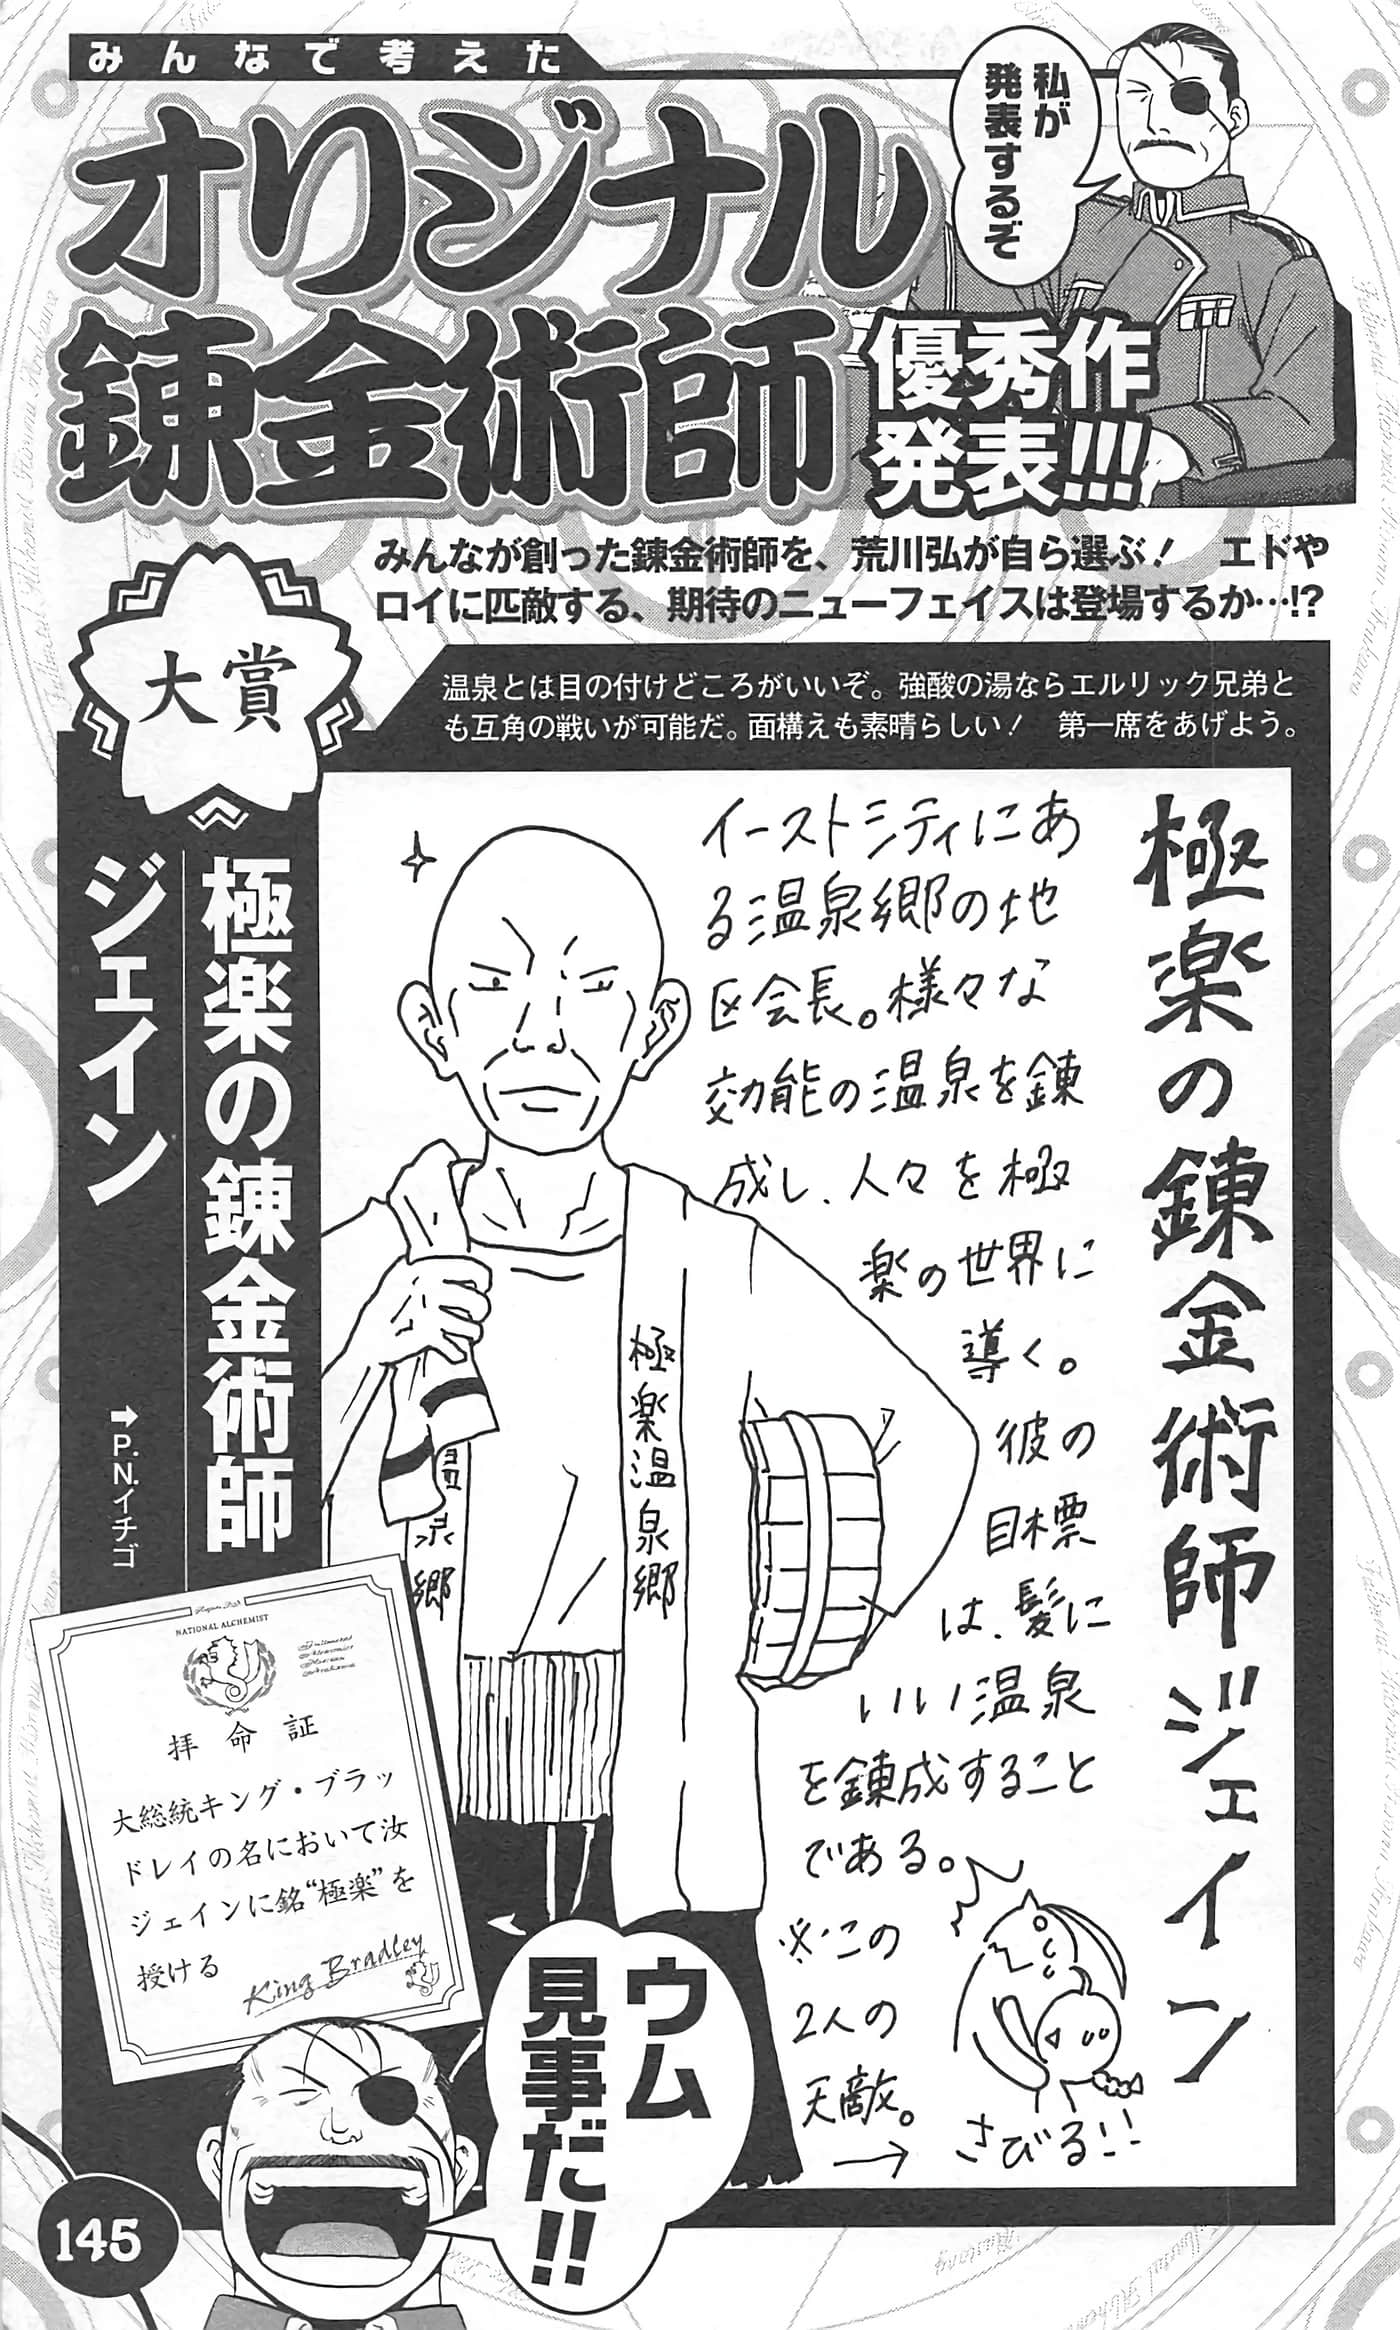 みんなで考えた
オリジナル
錬金術師
優秀作
発表!!!
私が
発表するぞ
みんなが創った錬金術師を、荒川弘が自ら選ぶ！　エドや
ロイに匹敵する、期待のニューフェイスは登場するか…!?
大賞
温泉とは目の付けどころがいいぞ。強酸の湯ならエルリック兄弟と
も互角の戦いが可能だ。面構えも素晴らしい！　第一席をあげよう。
極楽の錬金術師
ジェイン
➡P.N.イチゴ
極楽の錬金術師ジェイン
イーストシティにあ
る温泉郷の地
区会長。様々な
効能の温泉を錬
成し、人々を極
楽の世界に
導く。
彼の
目標
は、髪に
いい温泉
を錬成すること
である。
※この
2人の
天敵。
→
さびる!!
極楽温泉郷
泉郷
NATIONAL ALCHEMIST
Fullmetal
Alchemist
Hiromu
Arakawa
拝命証
大総統キング・ブラッ
ドレイの名において汝
ジェインに銘“極楽”を
授ける
King Bradley
ウム
見事だ!!
145